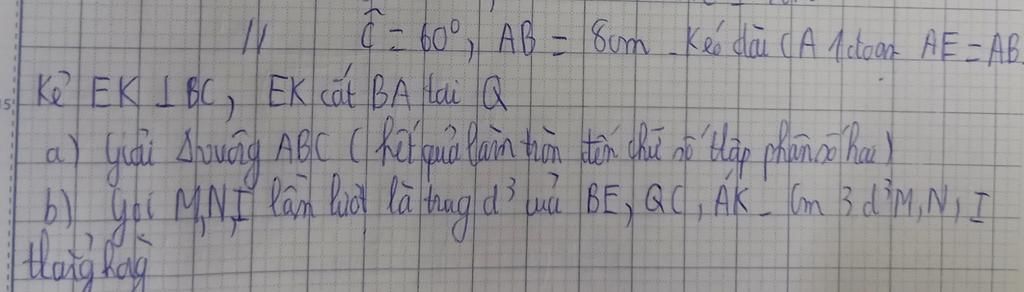 // Ĉ = 60⁰, AB = 8cm. Kéo dài CA 1 đoạn AE = AB.
Kẻ EK ⊥ BC, EK cắt BA tại Q
a) Giải Δvuông ABC (kết quả làm tròn đến chữ số thập phân số hai)
b) Gọi M,N,I lần lượt là trug đ³ của BE, QC, AK. Cm 3 đ³ M, N, I
thẳg hàg